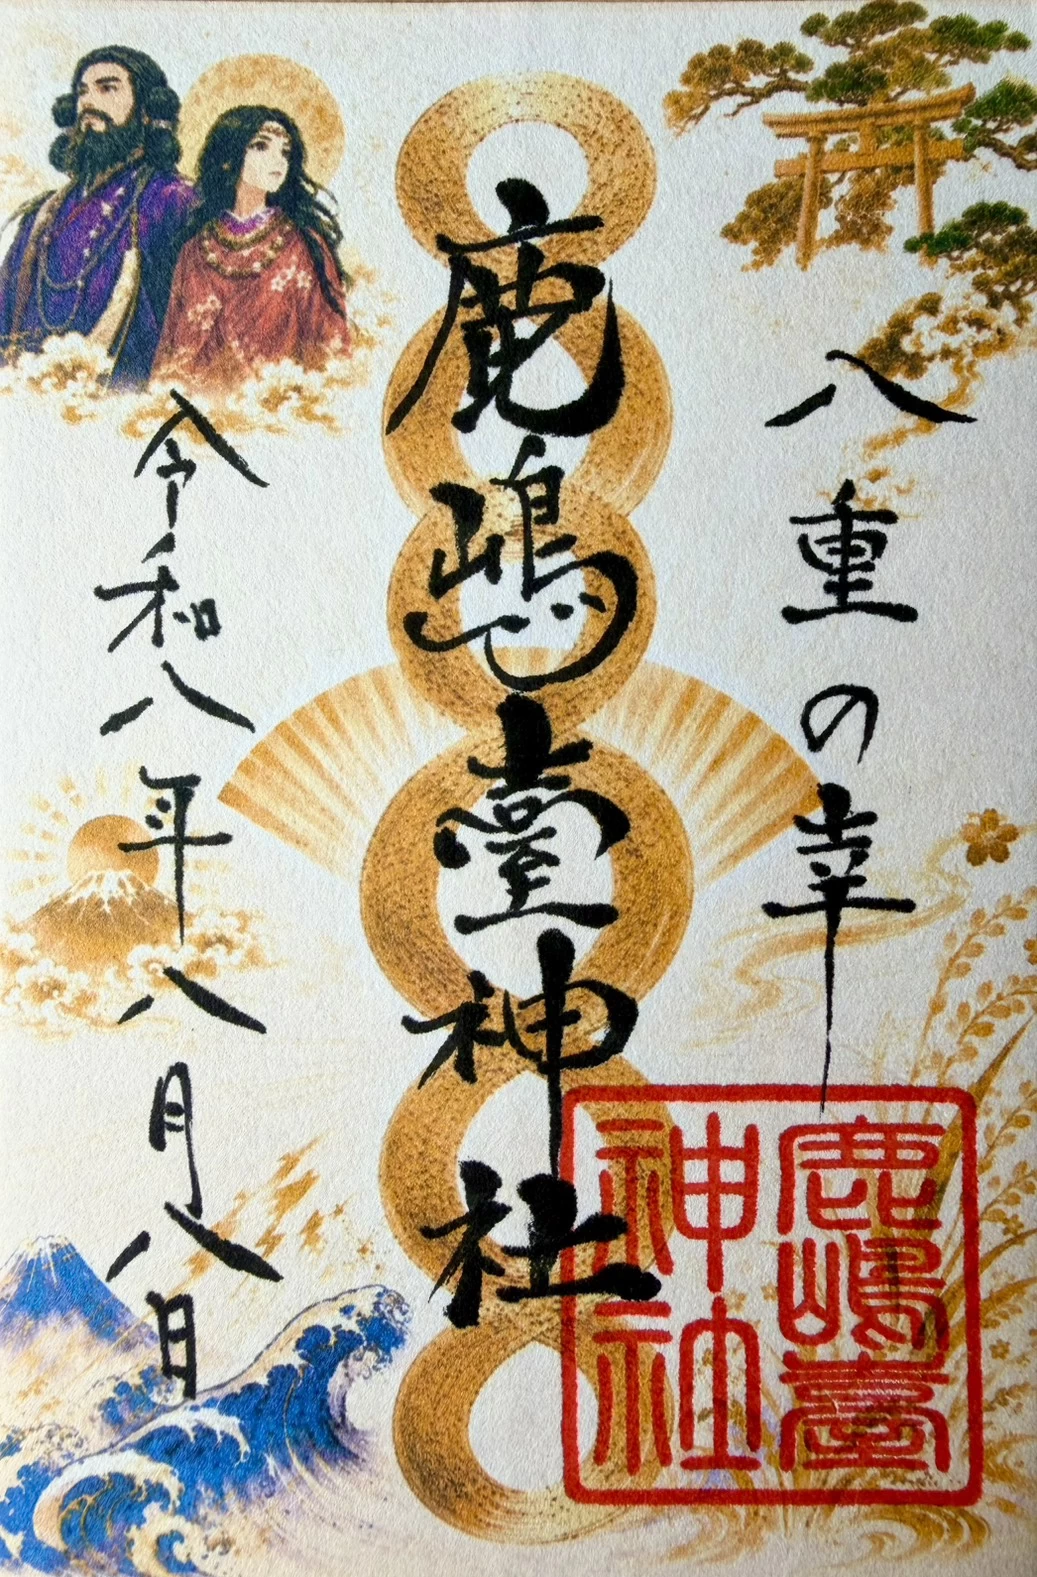 八重の幸
鹿嶋臺神社
令和八年八月八日
鹿嶋臺
神社